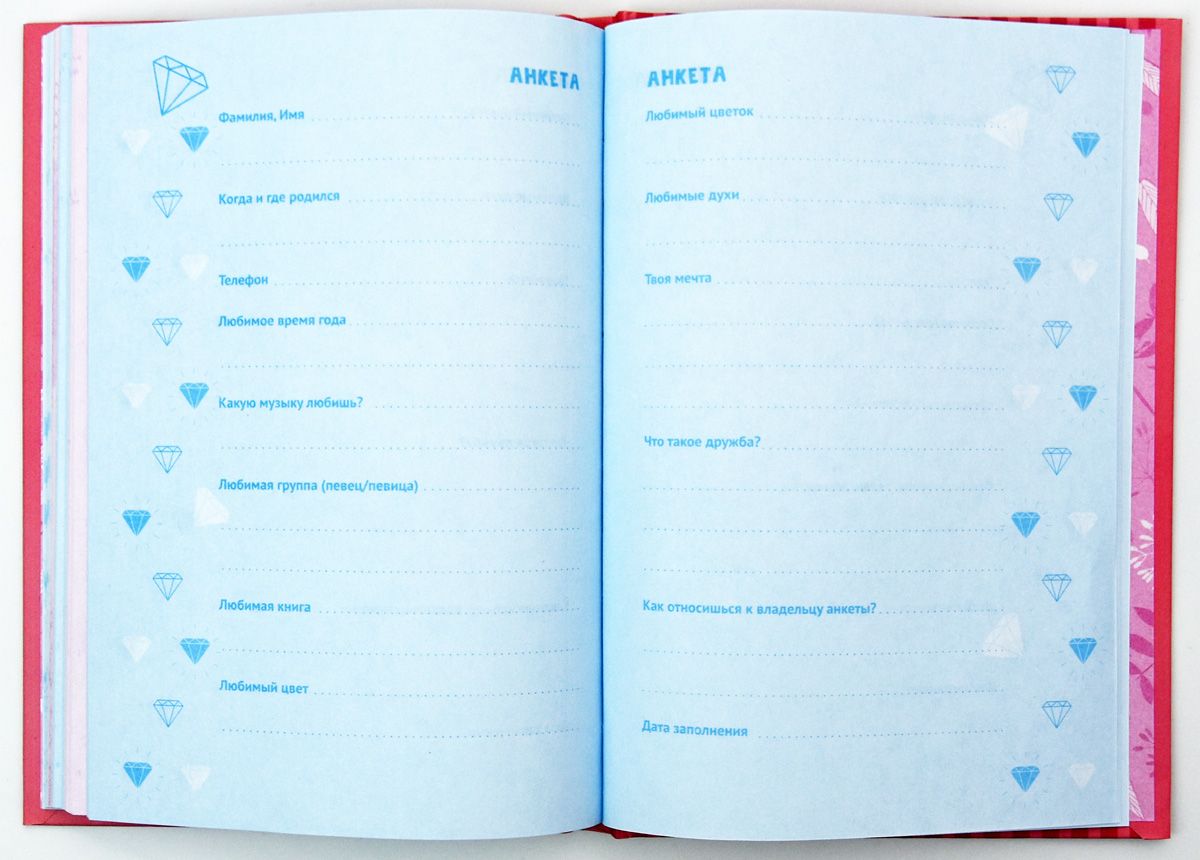 АНКЕТА
Фамилия, Имя
Когда и где родился
Телефон
Любимое время года
Какую музыку любишь?
Любимая группа (певец/певица)
Любимая книга
Любимый цвет
АНКЕТА
Любимый цветок
Любимые духи
Твоя мечта
Что такое дружба?
Как относишься к владельцу анкеты?
Дата заполнения